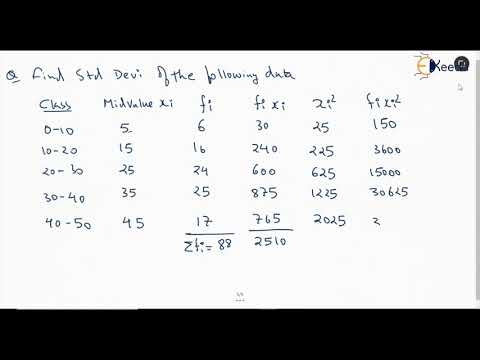 Q Find Std Devi of the following data
Class Midvalue xi fi fi xi xi² fi xi²
0-10 5 6 30 25 150
10-20 15 16 240 225 3600
20-30 25 24 600 625 15000
30-40 35 25 875 1225 30625
40-50 45 17 765 2025 3
Σfi = 88 2510